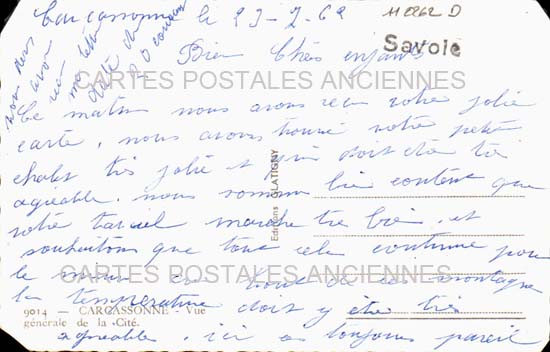 Carcassonne le 23-7-62
11 0262 D
Savoie
nous avons
reçu
ma lettre
datée du
20 courant
Bien Chers enfants
CARTES POSTALES ANCIENNES
Ce matin nous avons reçu votre jolie
carte, nous avons trouvé votre petit
chalet très jolie et qui doit être très
agréable, nous sommes bien content que
votre travail marche très bien, et
souhaitons que tout cela continue pour
le mieux
CARTES POSTALES ANCIENNES
tout de ces montagnes
la température doit y être très
agréable, ici toujours pareil
Editions GLATIGNY
9014 — CARCASSONNE - Vue
générale de la Cité.